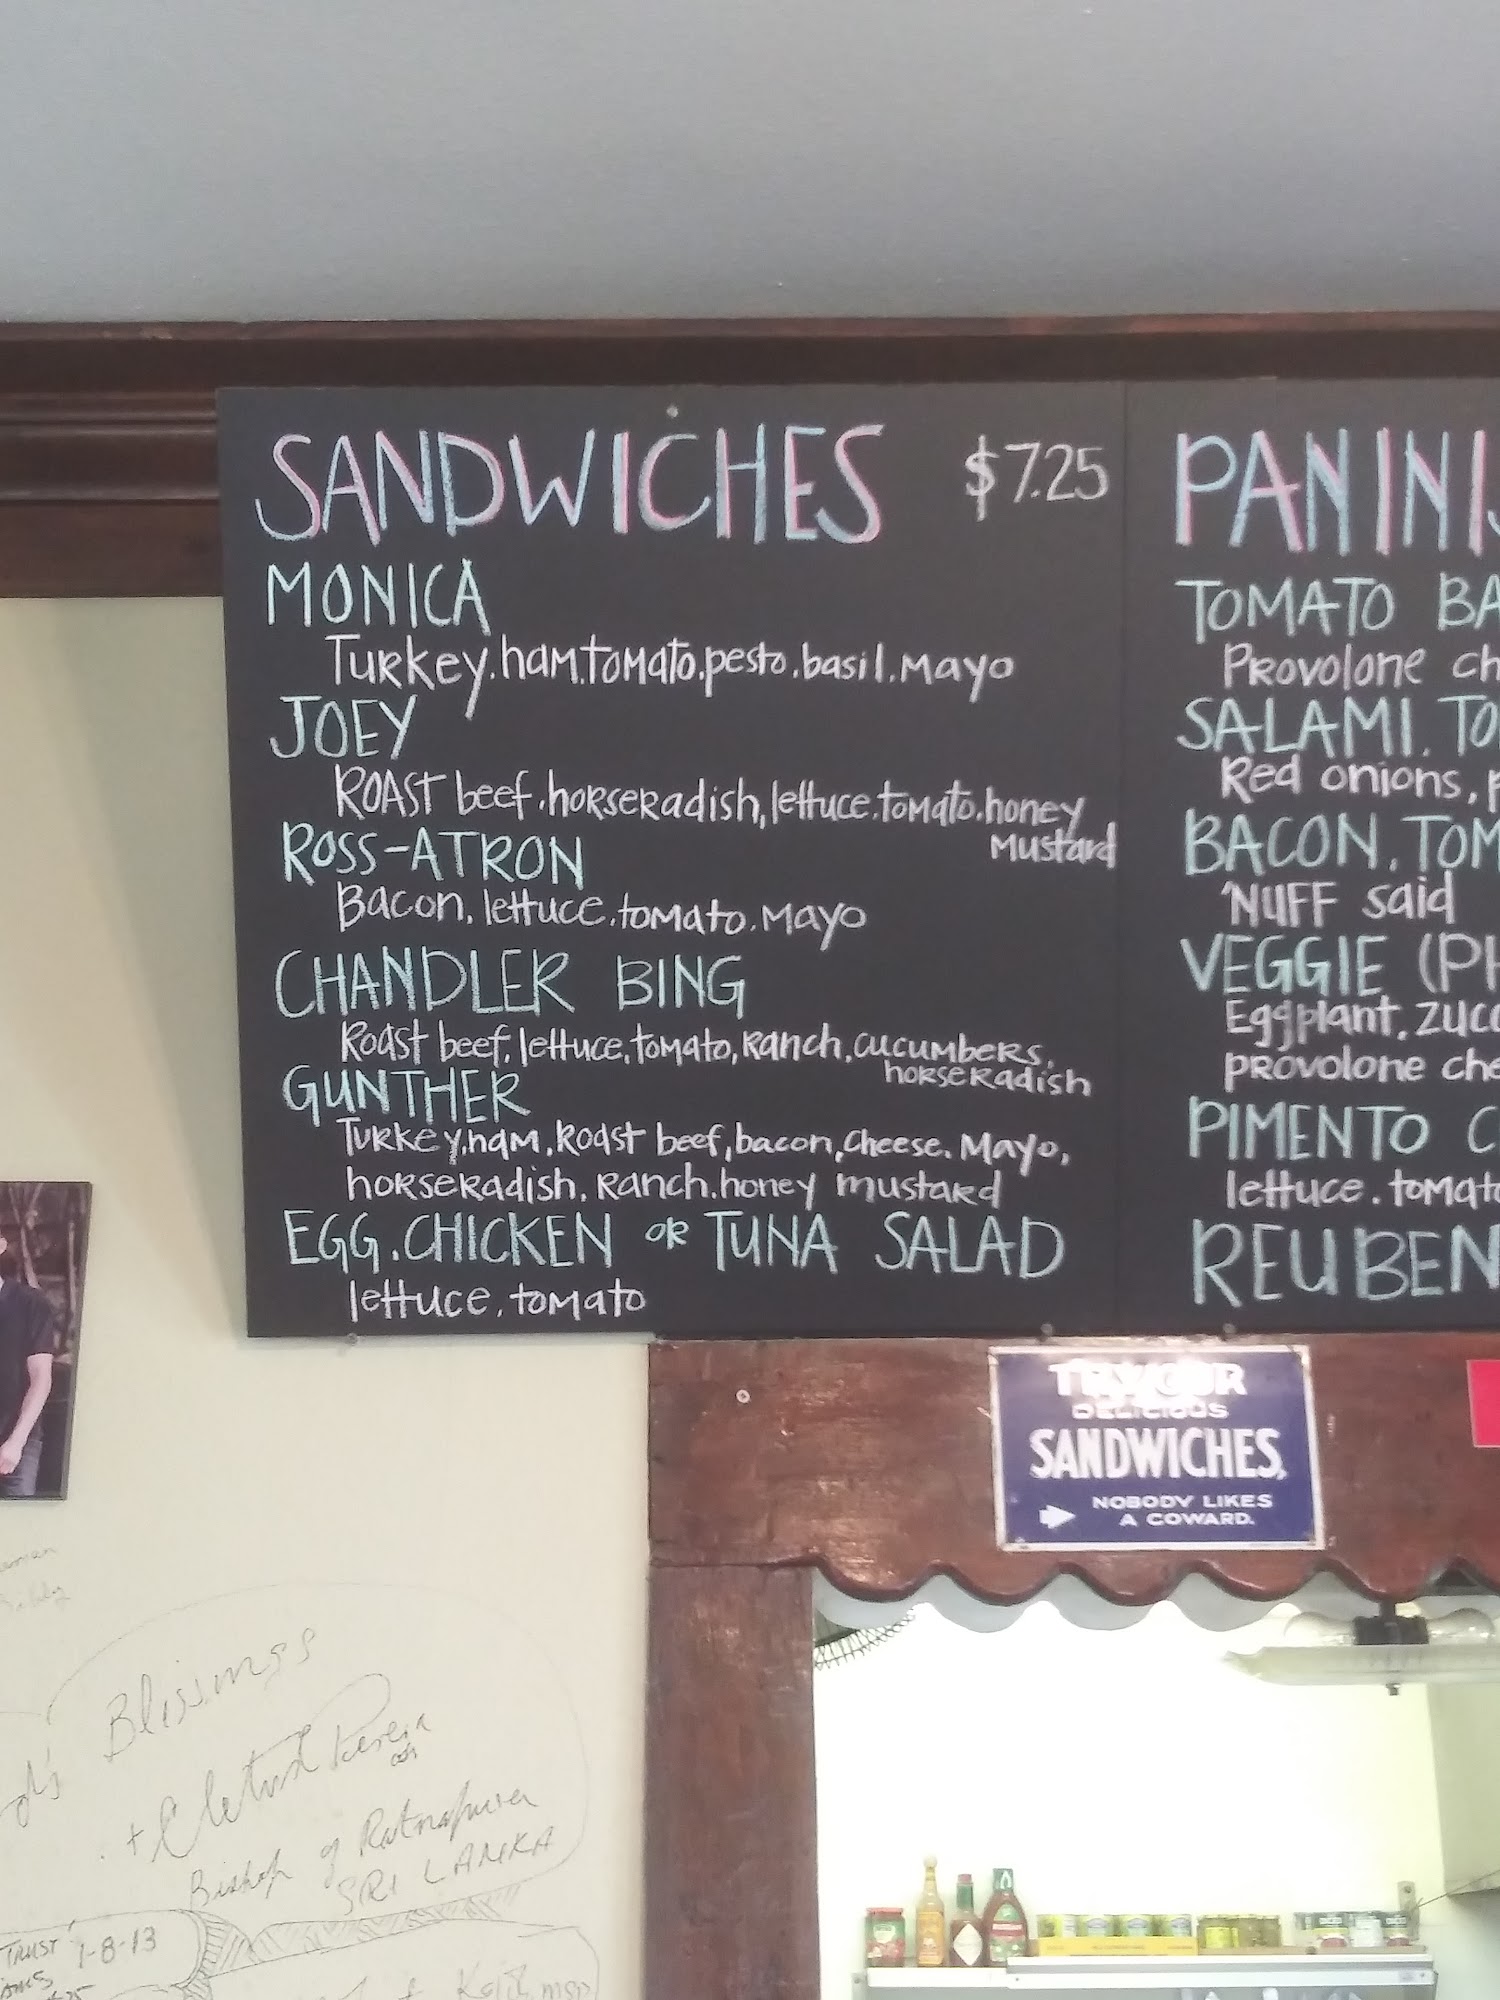 SANDWICHES $7.25
MONICA
Turkey.ham.tomato.pesto.basil.mayo
JOEY
Roast beef.horseradish,lettuce.tomato.honey
mustard
ROSS-ATRON
Bacon.lettuce.tomato.mayo
CHANDLER BING
Roast beef,lettuce,tomato,ranch,cucumbers,
horseradish
GUNTHER
Turkey,ham.Roast beef,bacon,cheese.mayo,
horseradish.ranch.honey mustard
EGG.CHICKEN OR TUNA SALAD
lettuce.tomato
PANINI
TOMATO
Provolone
SALAMI.
Red onions,
BACON.
'NUFF said
VEGGIE
Eggplant.
provolone
PIMENTO
lettuce.
REUBEN
TRY OUR
DELICIOUS
SANDWICHES,
NOBODY LIKES
A COWARD.
Blissings
+ Cletus Perera
Bishop of Ratnapura
SRI LANKA
TRUST 1-8-13